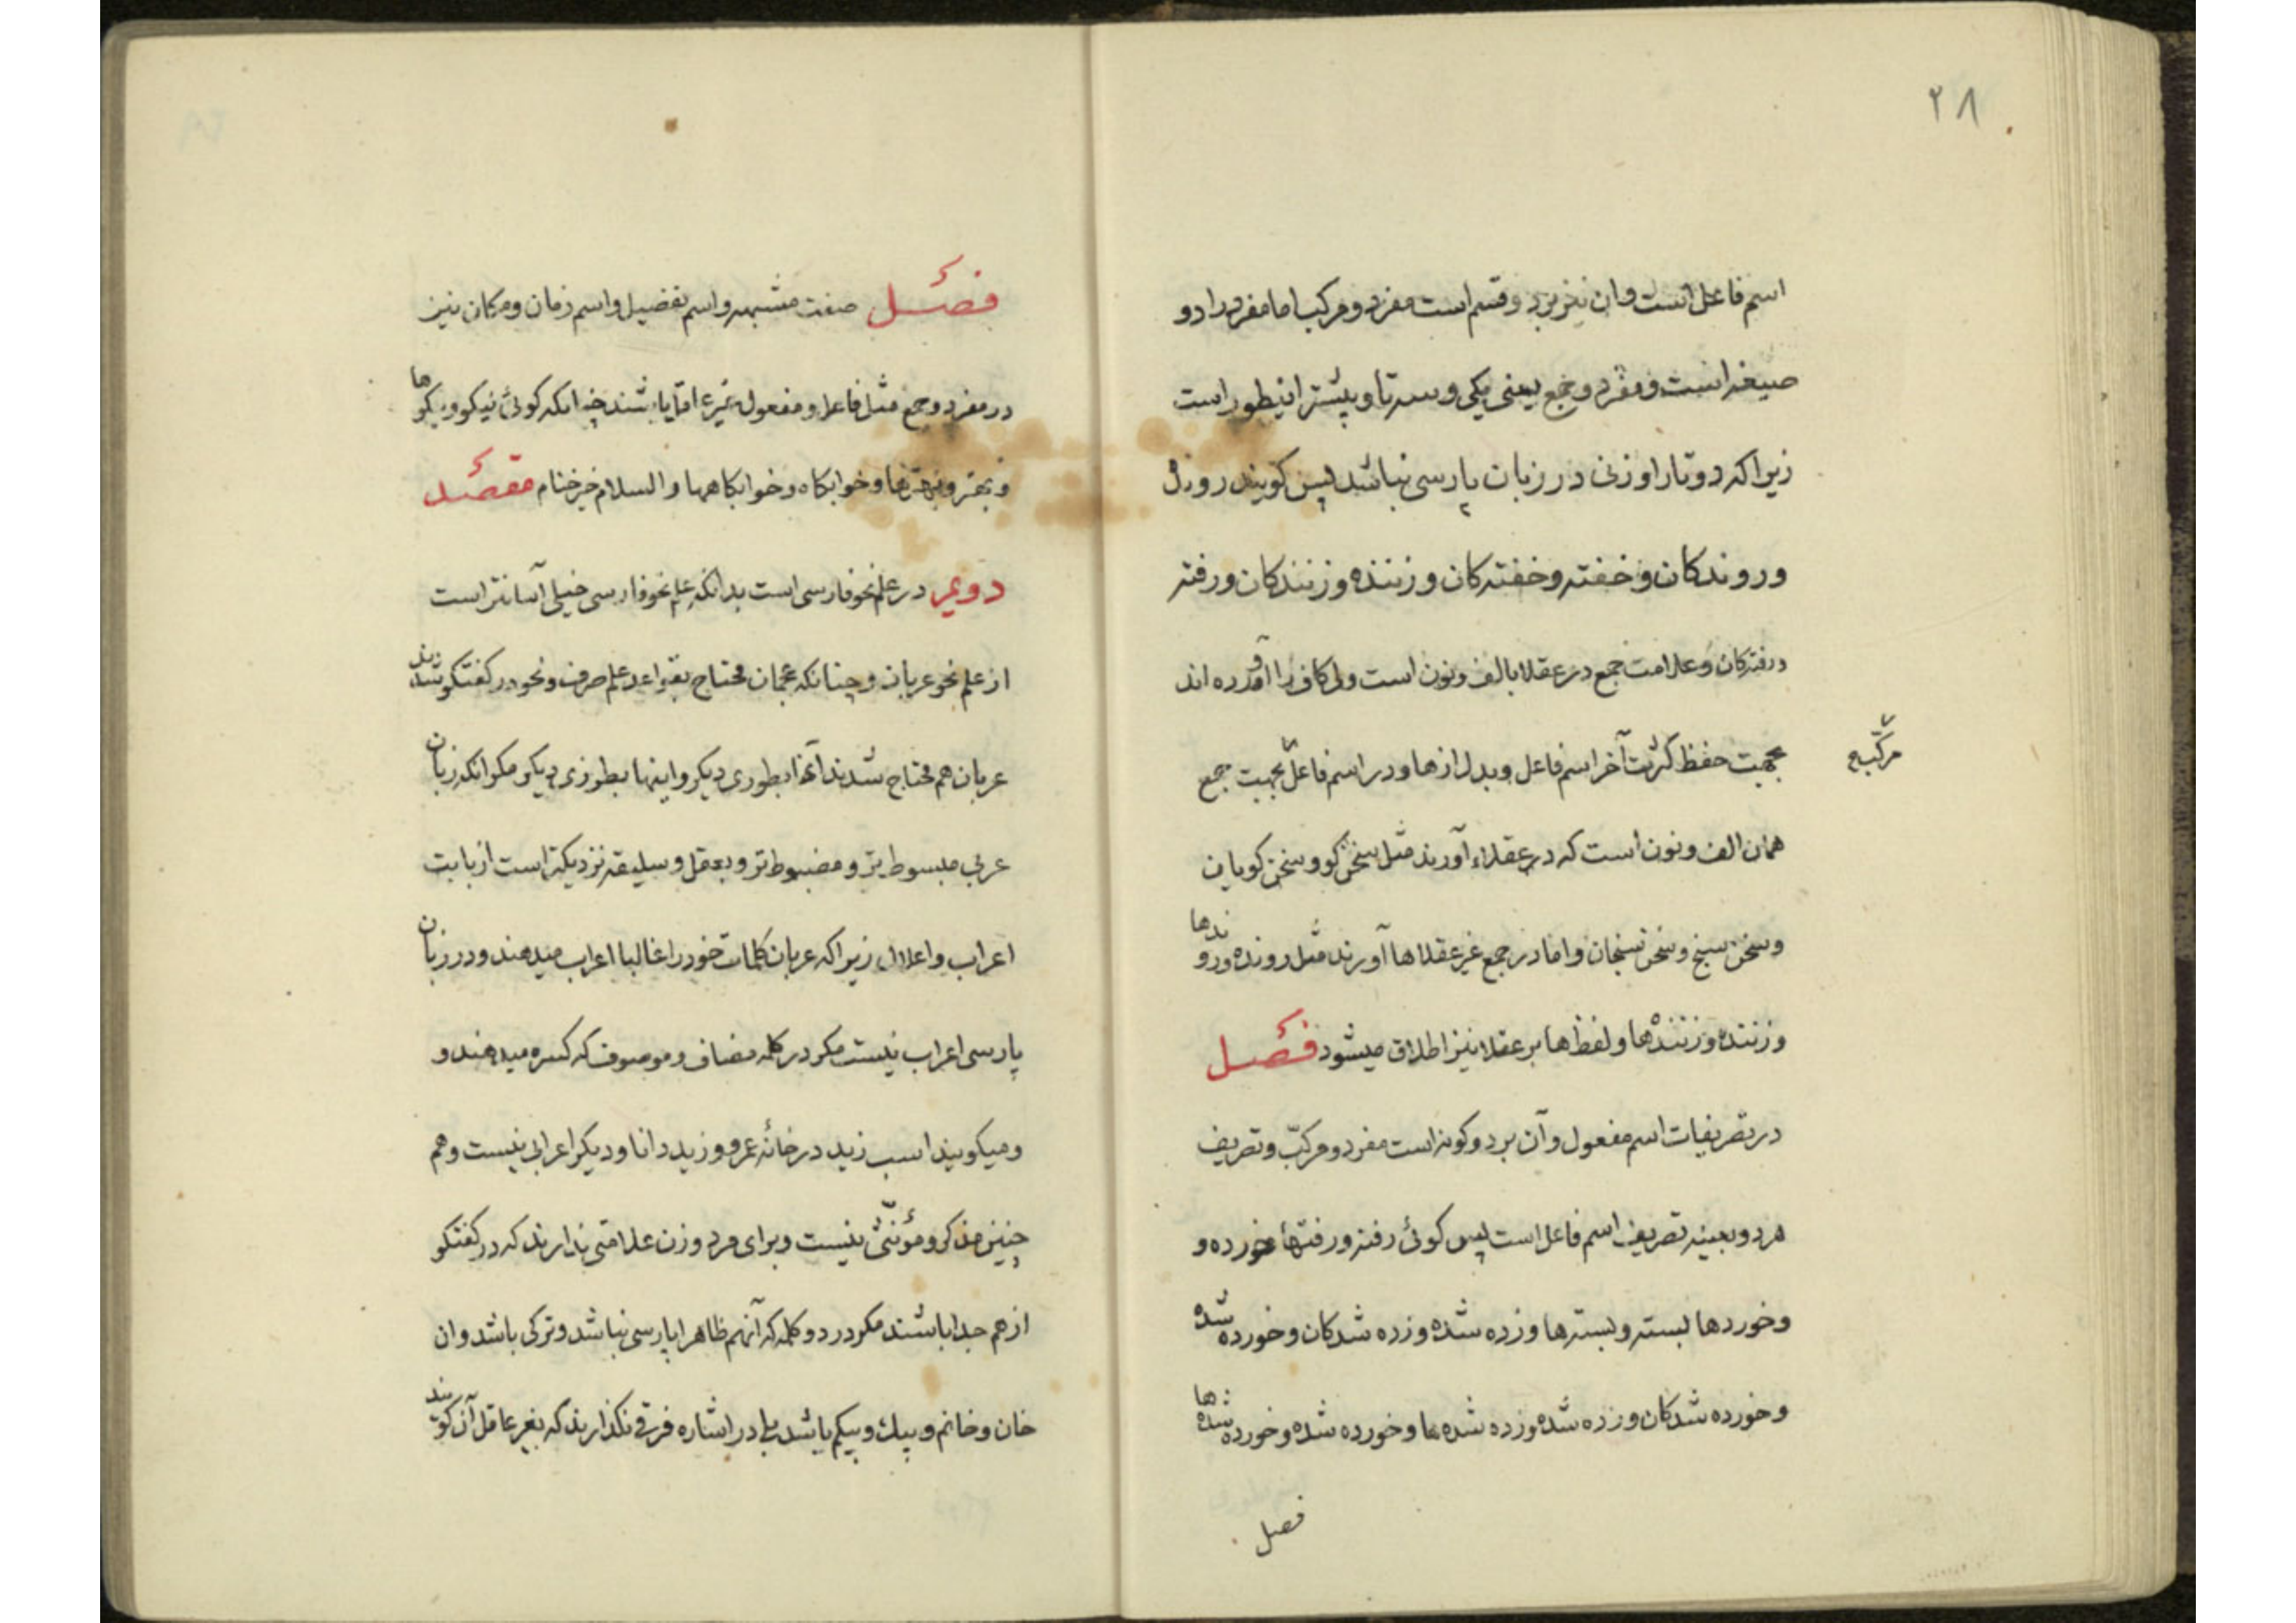 ۲۸
اسم فاعل است و ان نیز بردو قسم است مفرد و مرکب اما مفرد را دو
صیغه است مفرد و جمع یعنی یکی و سه تا و بیشتر اینطور است
زیرا که دو تا را وزنی در زبان پارسی نباشد پس کویند رونده
و روندکان و خفته و خفته کان و زننده و زنندکان و رفته
و رفته کان و علامت جمع در عقلا بالف و نون است ولی کاف را آورده اند
بجهت حفظ کردن آخر اسم فاعل و بدل از ها و در اسم فاعل بجهت جمع
مرکب
همان الف و نون است که در عقلاء آورند مثل سخن کو و سخن کویان
و سخن سنج و سخن سنجان و اما در جمع غیر عقلا ها آورند مثل رونده و روندها
و زننده و زننده ها و لفظ ها بر عقلا نیز اطلاق میشود فصل
در تصریفات اسم مفعول و آن بر دو کونه است مفرد و مرکبّ و تصریف
هر دو بعینه تصریف اسم فاعل است پس کوئی رفته و رفتها خورده و
و خوردها بسته و بسته ها و زده شده و زده شدکان و خورده شده
و خورده شدکان و زده شده و زده شده ها و خورده شده و خورده شده ها
فصل
فصل صفت مشبهه و اسم تفضیل و اسم زمان و مکان نیز
در مفرد و جمع مثل فاعل و مفعول باشند چنانکه کوئی نیکو و نیکوها
و بهتر و بهترها و خوابکاه و خوابکاهها و السلام خیر ختام مقصد
دویم در علم نحو فارسی است بدانکه علم نحو فارسی خیلی آسانتر است
از علم نحو عربان و چنانکه عجمان محتاج بقواعد علم صرف و نحو در کفتکو شدند
عربان هم محتاج شدند آنها بطوری دیکر و اینها بطرزی دیکر مکر آنکه زبان
عربی مبسوط تر و مضبوط تر و بعقل و سلیقه نزدیکتر است از بابت
اعراب و اعلال زیرا که عربان کلمات خود را غالبا اعراب میدهند و در زبان
پارسی اعراب نیست مکر در کلمه مضاف و موصوف که کسره میدهند و
و میکویند اسب زید در خانهٔ عمرو و زید دانا و دیکر اعرابی نیست و هم
چنین مذکر و مؤنثی نیست و برای مرد و زن علامتی ندارند که در کفتکو
از هم جدا باشند مکر در دو کلمه که آنهم ظاهرا پارسی نباشد و ترکی باشد و ان
خان و خانم و بیک و بیکم باشد بلی در اشاره فرقی نکذارند که بغیر عاقل آن کویند